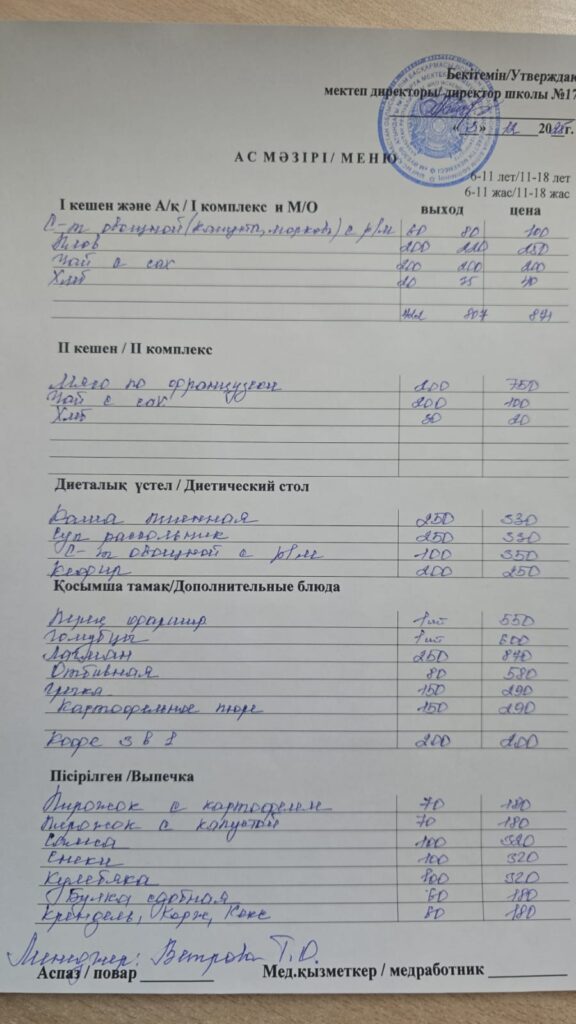 Бекітемін/Утверждаю
мектеп директоры/ директор школы №17
«13» 11 2025г.
АС МӘЗІРІ/ МЕНЮ
6-11 лет/11-18 лет
6-11 жас/11-18 жас
I кешен және А/қ / I комплекс и М/О выход цена
С-т овощной (капуста, морковь) с р/м 60 80 100
Плов 200 250
Чай с сах 200 200 200
Хлеб 40
807 871
II кешен / II комплекс
Мясо по французски 200 750
Чай с сах 200 100
Хлеб 30 20
Диеталық үстел / Диетический стол
Каша пшенная 250 330
Суп рассольник 250 330
С-т овощной с р/м 100 350
Кефир 200 250
Қосымша тамақ/Дополнительные блюда
Перец фаршир 1шт 550
Голубцы 1шт 600
Лагман 250 870
Отбивная 80 580
Гречка 150 290
Картофельное пюре 150 290
Кофе 3 в 1 200 200
Пісірілген /Выпечка
Пирожок с картофелем 70 180
Пирожок с капустой 70 180
Самса 100 320
Снеки 100 320
Кулебяка 100 320
Булка сдобная 60 180
Крендель, Корж, Кекс 80 180
Менеджер: Ветрова Т.О.
Аспаз / повар Мед.қызметкер / медработник